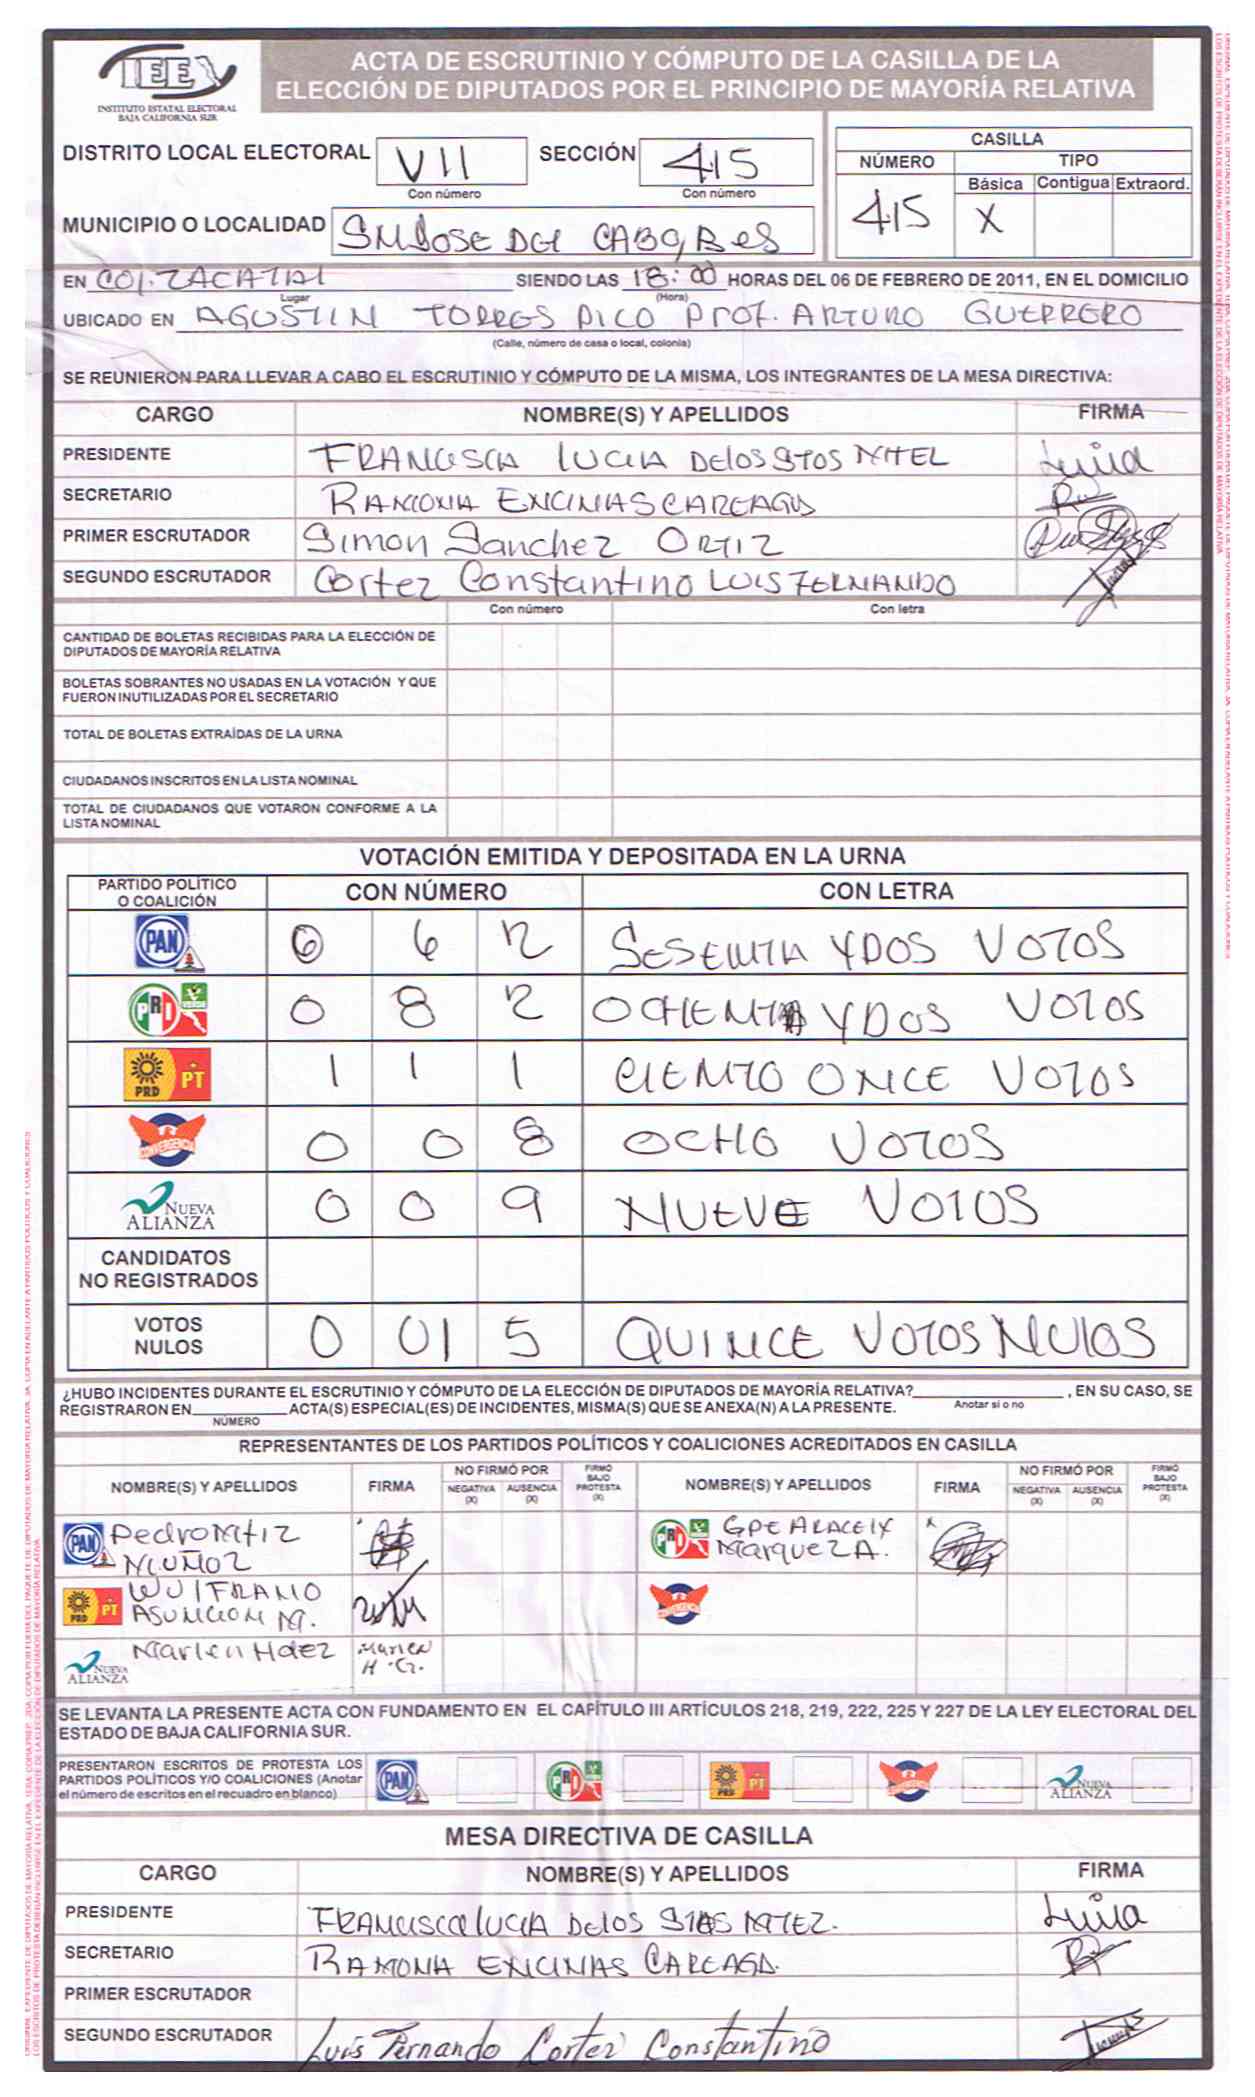 IEE
INSTITUTO ESTATAL ELECTORAL
BAJA CALIFORNIA SUR
ACTA DE ESCRUTINIO Y CÓMPUTO DE LA CASILLA DE LA
ELECCIÓN DE DIPUTADOS POR EL PRINCIPIO DE MAYORÍA RELATIVA
DISTRITO LOCAL ELECTORAL VII SECCIÓN 415
Con número Con número
CASILLA
NÚMERO TIPO
Básica Contigua Extraord.
415 X
MUNICIPIO O LOCALIDAD SN JOSE DEL CABO, BCS
EN COL. ZACATAL SIENDO LAS 18:00 HORAS DEL 06 DE FEBRERO DE 2011, EN EL DOMICILIO
Lugar (Hora)
UBICADO EN AGUSTIN TORRES PICO Prof. ARTURO GUERRERO
(Calle, número de casa o local, colonia)
SE REUNIERON PARA LLEVAR A CABO EL ESCRUTINIO Y CÓMPUTO DE LA MISMA, LOS INTEGRANTES DE LA MESA DIRECTIVA:
CARGO NOMBRE(S) Y APELLIDOS FIRMA
PRESIDENTE FRANCISCA LUCIA DE LOS STOS
SECRETARIO RAMONA ENCINAS CAREAGA
PRIMER ESCRUTADOR Simon Sanchez ORTIZ
SEGUNDO ESCRUTADOR Cortez Constantino LUIS FERNANDO
Con número Con letra
CANTIDAD DE BOLETAS RECIBIDAS PARA LA ELECCIÓN DE
DIPUTADOS DE MAYORÍA RELATIVA
BOLETAS SOBRANTES NO USADAS EN LA VOTACIÓN Y QUE
FUERON INUTILIZADAS POR EL SECRETARIO
TOTAL DE BOLETAS EXTRAÍDAS DE LA URNA
CIUDADANOS INSCRITOS EN LA LISTA NOMINAL
TOTAL DE CIUDADANOS QUE VOTARON CONFORME A LA
LISTA NOMINAL
VOTACIÓN EMITIDA Y DEPOSITADA EN LA URNA
PARTIDO POLÍTICO
O COALICIÓN CON NÚMERO CON LETRA
PAN 0 6 2 SESENTA Y DOS VOTOS
PRI VERDE 0 8 2 OCHENTA Y DOS VOTOS
PRD PT 1 1 1 CIENTO ONCE VOTOS
CONVERGENCIA 0 0 8 OCHO VOTOS
NUEVA ALIANZA 0 0 9 NUEVE VOTOS
CANDIDATOS
NO REGISTRADOS
VOTOS
NULOS 0 01 5 QUINCE VOTOS NULOS
¿HUBO INCIDENTES DURANTE EL ESCRUTINIO Y CÓMPUTO DE LA ELECCIÓN DE DIPUTADOS DE MAYORÍA RELATIVA? , EN SU CASO, SE
Anotar si o no
REGISTRARON EN ACTA(S) ESPECIAL(ES) DE INCIDENTES, MISMA(S) QUE SE ANEXA(N) A LA PRESENTE.
NÚMERO
REPRESENTANTES DE LOS PARTIDOS POLÍTICOS Y COALICIONES ACREDITADOS EN CASILLA
NOMBRE(S) Y APELLIDOS FIRMA NO FIRMÓ POR NEGATIVA (X) AUSENCIA (X) FIRMÓ BAJO PROTESTA (X) NOMBRE(S) Y APELLIDOS FIRMA NO FIRMÓ POR NEGATIVA (X) AUSENCIA (X) FIRMÓ BAJO PROTESTA (X)
PAN Pedro Mtiz MUÑOZ
PRI GPE ARACELY Marquez A.
PRD PT WULFRANO ASUNCION M.
CONVERGENCIA
NUEVA ALIANZA Marlen Hdez Marlen H. G.
SE LEVANTA LA PRESENTE ACTA CON FUNDAMENTO EN EL CAPÍTULO III ARTÍCULOS 218, 219, 222, 225 Y 227 DE LA LEY ELECTORAL DEL
ESTADO DE BAJA CALIFORNIA SUR.
PRESENTARON ESCRITOS DE PROTESTA LOS
PARTIDOS POLÍTICOS Y/O COALICIONES (Anotar
el número de escritos en el recuadro en blanco)
PAN PRI VERDE PRD PT CONVERGENCIA NUEVA ALIANZA
MESA DIRECTIVA DE CASILLA
CARGO NOMBRE(S) Y APELLIDOS FIRMA
PRESIDENTE FRANCISCA LUCIA DE LOS STOS MTEZ.
SECRETARIO RAMONA ENCINAS CAREAGA.
PRIMER ESCRUTADOR
SEGUNDO ESCRUTADOR Luis Fernando Cortez Constantino